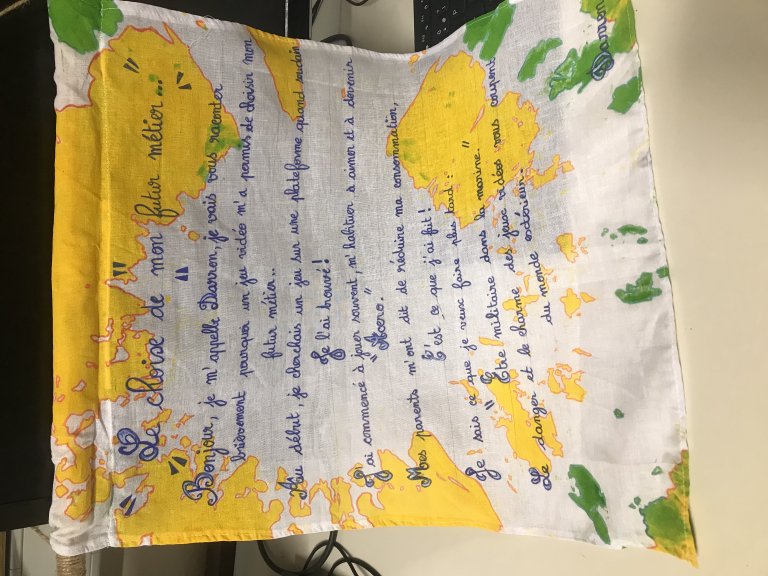 Le choise de mon futur métier...
Bonjour, je m'appelle Darron, je vais vous raconter
brièvement pourquoi un jeu vidéo m'a permis de choisir mon
futur métier..
Au début, je cherchais un jeu sur une plateforme quand sudain
Je l'ai trouvé !
J'ai commencé à jouer souvent, m'habituer à aimer et à devenir
"Accero."
Mes parents m'ont dit de réduire ma consommation,
C'est ce que j'ai fait !
Je sais ce que je veux faire plus tard :
"Etre militaire dans la marine."
Le danger et le charme des jeux vidéos vous coupent
du monde extérieur.
Darron